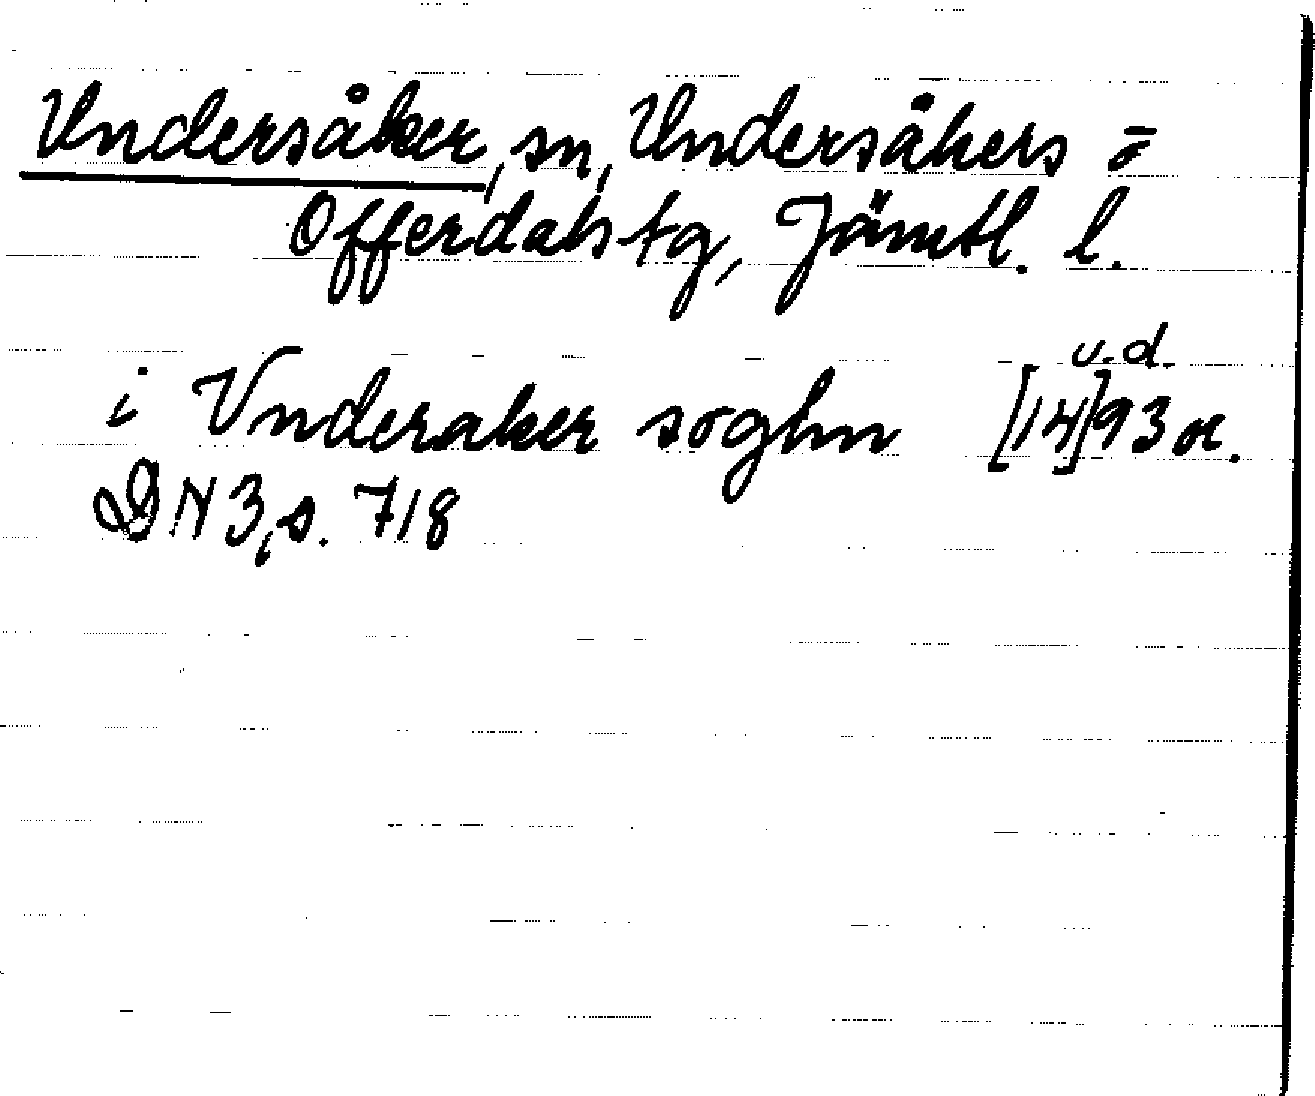 Undersåker, sn, Undersåkers o
Offerdals tg, Jämtl. l.
u.d.
i Vnderaker soghn [14]93 or.
DN 3, s. 718